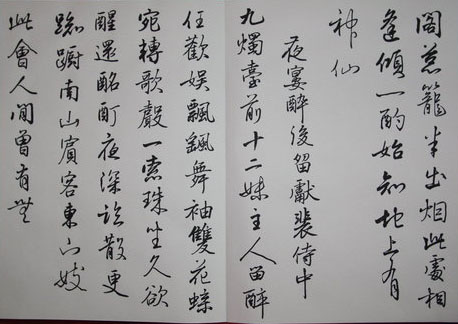 閣葱籠半出烟此處相
逢傾一酌始知地上有
神仙
夜宴醉後留獻裴侍中
九燭臺前十二姝主人留醉
任歡娛飄颻舞袖雙花蝶
宛轉歌聲一索珠坐久欲
醒還酩酊夜深臨散更
踟躕南山賓客東山妓
此會人間曾有無